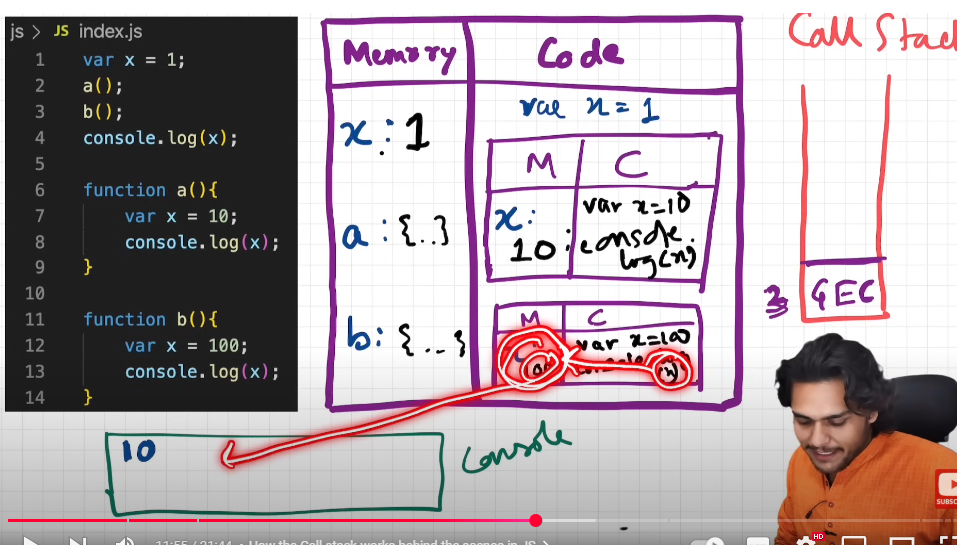 js > JS index.js
1 var x = 1;
2 a();
3 b();
4 console.log(x);
5
6 function a(){
7 var x = 10;
8 console.log(x);
9 }
10
11 function b(){
12 var x = 100;
13 console.log(x);
14 }
Memory Code
var x = 1
x : 1
M C
x:
10
var x=10
: console.
log(x)
a : {..}
b: {...}
M C
var x=100
(x)
Call Stack
GEC
10
Console
SUBSC
11:55 / 21:44 • How the Call stack works behind the scenes in JS >
HD